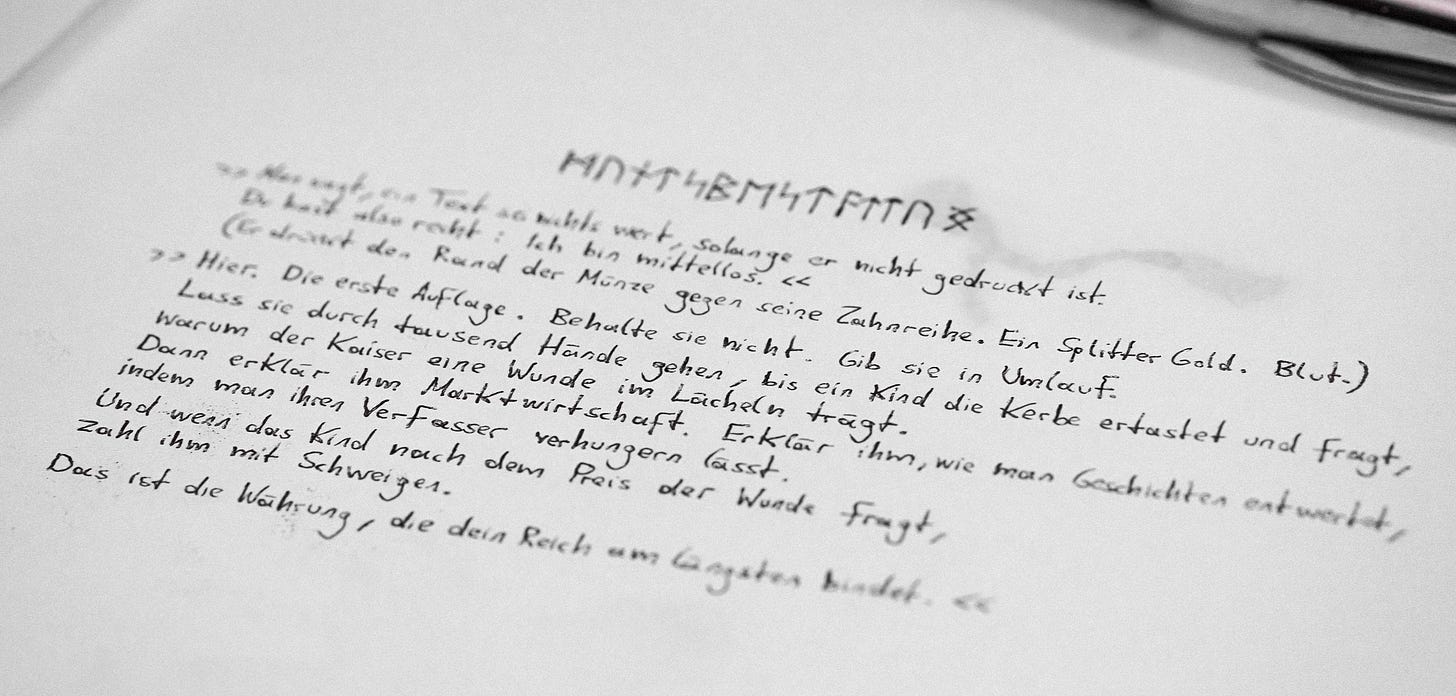 ᛗᚢᚾᛏᛋᛒᛖᛋᛏᚨᛏᛏᚢᛝ
>> sagt, ein Text sei nichts wert, solange er nicht gedruckt ist.
Du hast also recht: Ich bin mittellos. <<
(Er den Rand der Münze gegen seine Zahnreihe. Ein Splitter Gold. Blut.)
>> Hier. Die erste Auflage. Behalte sie nicht. Gib sie in Umlauf.
Lass sie durch tausend Hände gehen, bis ein Kind die Kerbe ertastet und fragt,
warum der Kaiser eine Wunde im Lächeln trägt.
Dann erklär ihm Marktwirtschaft. Erklär ihm, wie man Geschichten entwertet,
indem man ihren Verfasser verhungern lässt.
Und wenn das Kind nach dem Preis der Wunde fragt,
zahl ihm mit Schweigen.
Das ist die Währung, die dein Reich am längsten bindet. <<